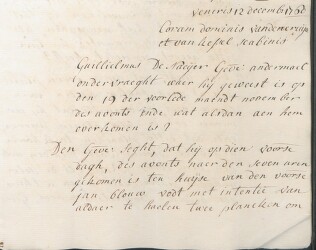 veneris 12 decemb: 176
Coram dominis vandemeryn
et van hessel scabinis
Guillielmus De Naeÿer Geve: andermael
ondervraeght waer hij geweest is op
den 19 der voorlede maendt november
des avonts inde wat aldan aen hem
overkomen is?
Den Geve: seght, dat hij op dien voorse
dagh, des avonts naer den seven uren
gekomen is ten huijse van den voorse
jan blouw vodt met intentie van
aldaer te haelen twee plancken om